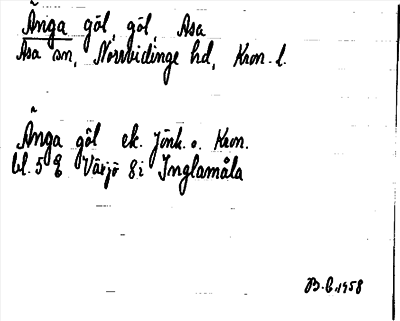 Änga göl, göl, Asa
Asa sn, Norrvidinge hd, Kron. l.
Änga göl ek. Jönk. o. Kron.
bl. 5 Växjö Inglamåla
B. E. 1958